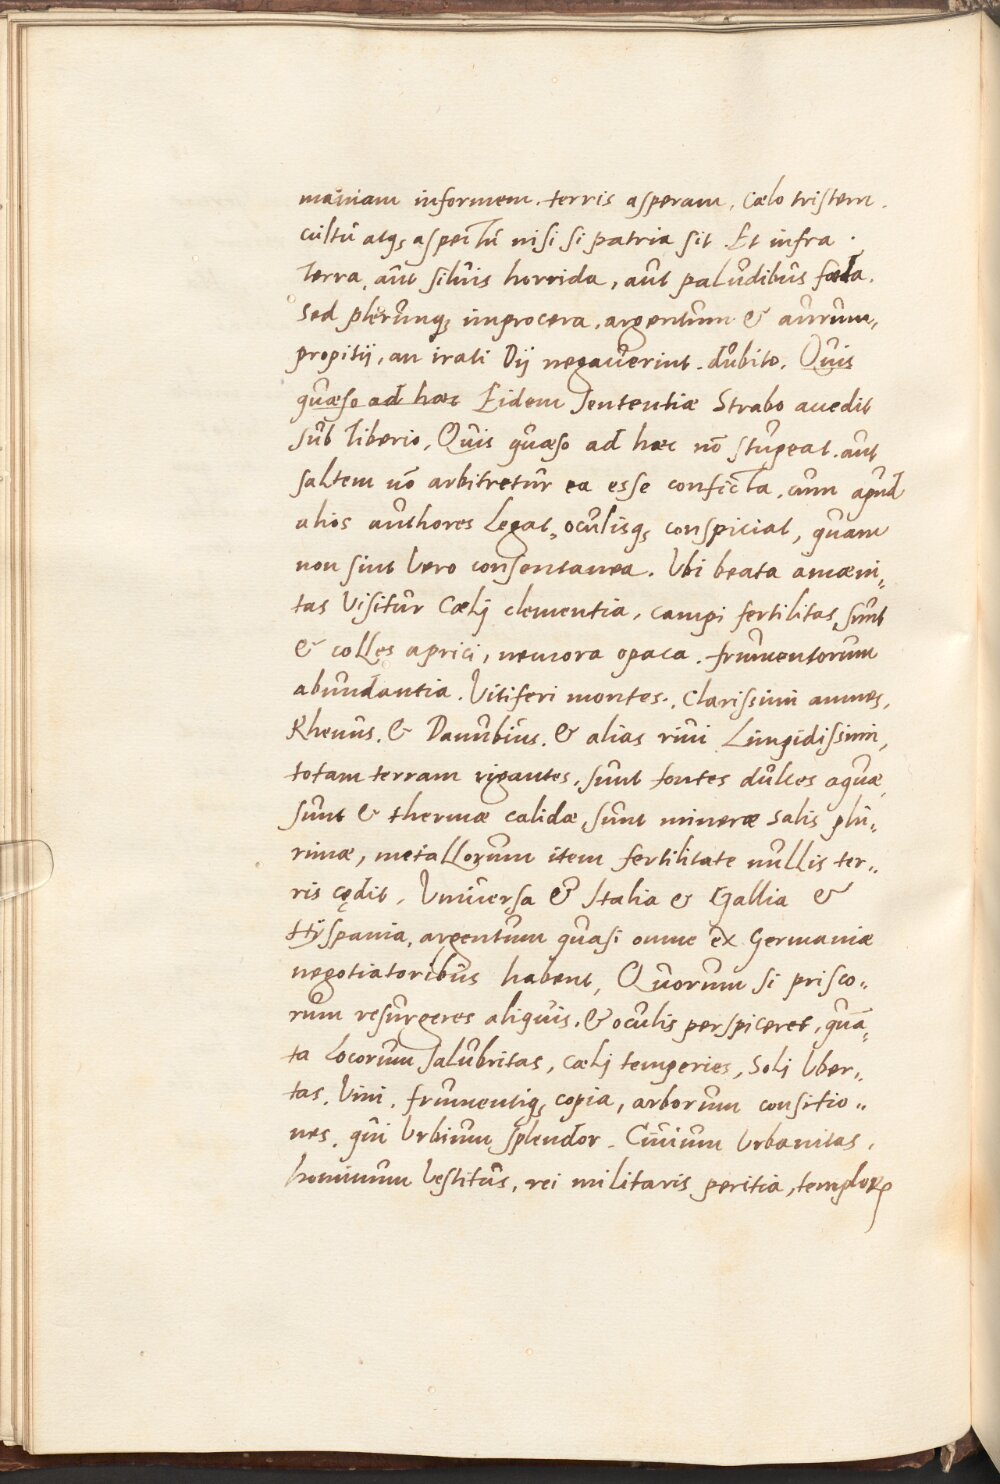 māniam informem. terris asperam, cælo tristem.
cultū atq; aspectū nisi si patria sit. Et infra.
Terra, aut siluis horrida, aut paludibus fœda.
Sed plerunq; improcera, argentum & aurum,
propitij, an irati Dij negauerint. dubito. Quis
quæso ad hæc Eidem sententiæ Strabo accedit
sub Tiberio, Quis quæso ad hæc nō stupeat. aut
saltem nō arbitretur ea esse conficta, cum apud
alios authores Legat, oculisq; conspiciat, quam
non sint Vero consentanea. Vbi beata amœni„
tas Visitur Cælj clementia, campi fertilitas, sunt
& colles aprici, nemora opaca. frumentorum
abundantia. Vitiferi montes., Clarissimi amnes,
Rhenus, & Danubius, & alias riui Limpidissimi,
totam terram rigantes, sunt fontes dulces aquæ,
sunt & thermæ calidæ, sunt mineræ Salis plu„
rimæ, metallorum item fertilitate nullis ter„
ris cędit, Vniuersa & Italia & Gallia &
Hÿspania, argentum quasi omne ex Germaniæ
negotiatoribus habent, Quorum si prisco„
rum resurgeres aliquis, & oculis perspiceret, quā„
ta Locorum salubritas, Cælj temperies, Solj Vber„
tas, Vini, frumentiq; copia, arborum consitio„
nes, qui Vrbium splendor. Ciuium Vrbanitas,
hominum Vestitus, rei militaris peritia, templorꝝ